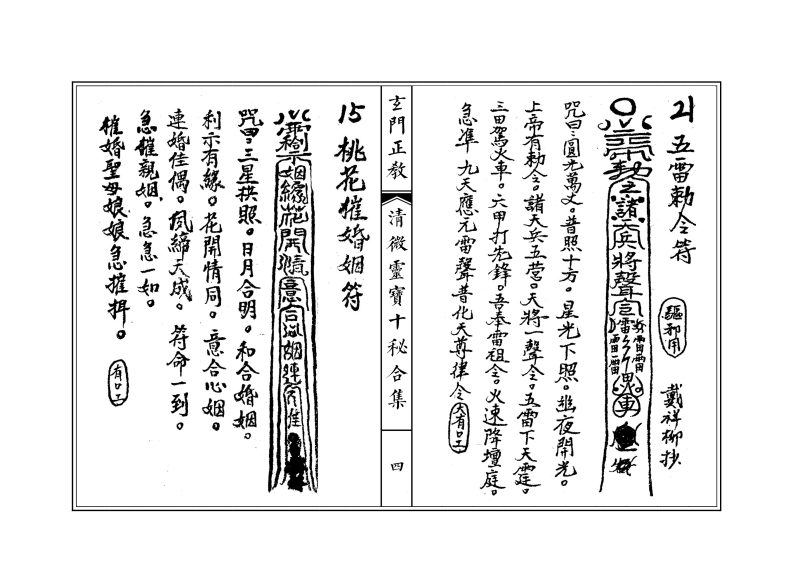 21 五雷勅令符
驅邪用
戴祥柳抄
勅令諸天兵將聲
咒曰。圓光萬丈。普照十方。星光下照。幽夜開光。
上帝有勅令。諸天兵五營。天將一聲令。五雷下天霆。
三田駕火車。六甲打先鋒。吾奉雷祖令。火速降壇庭。
急準 九天應元雷聲普化天尊律令
玄門正教
清微靈寶十秘合集
四
15 桃花催婚姻符
姻緣花開情意合心姻連
咒曰。三星拱照。日月合明。和合婚姻。
利示有緣。花開情同。意合心姻。
連婚佳偶。夙締天成。符命一到。
急催親姻。急急一如。
催婚聖母娘娘急摧揖。